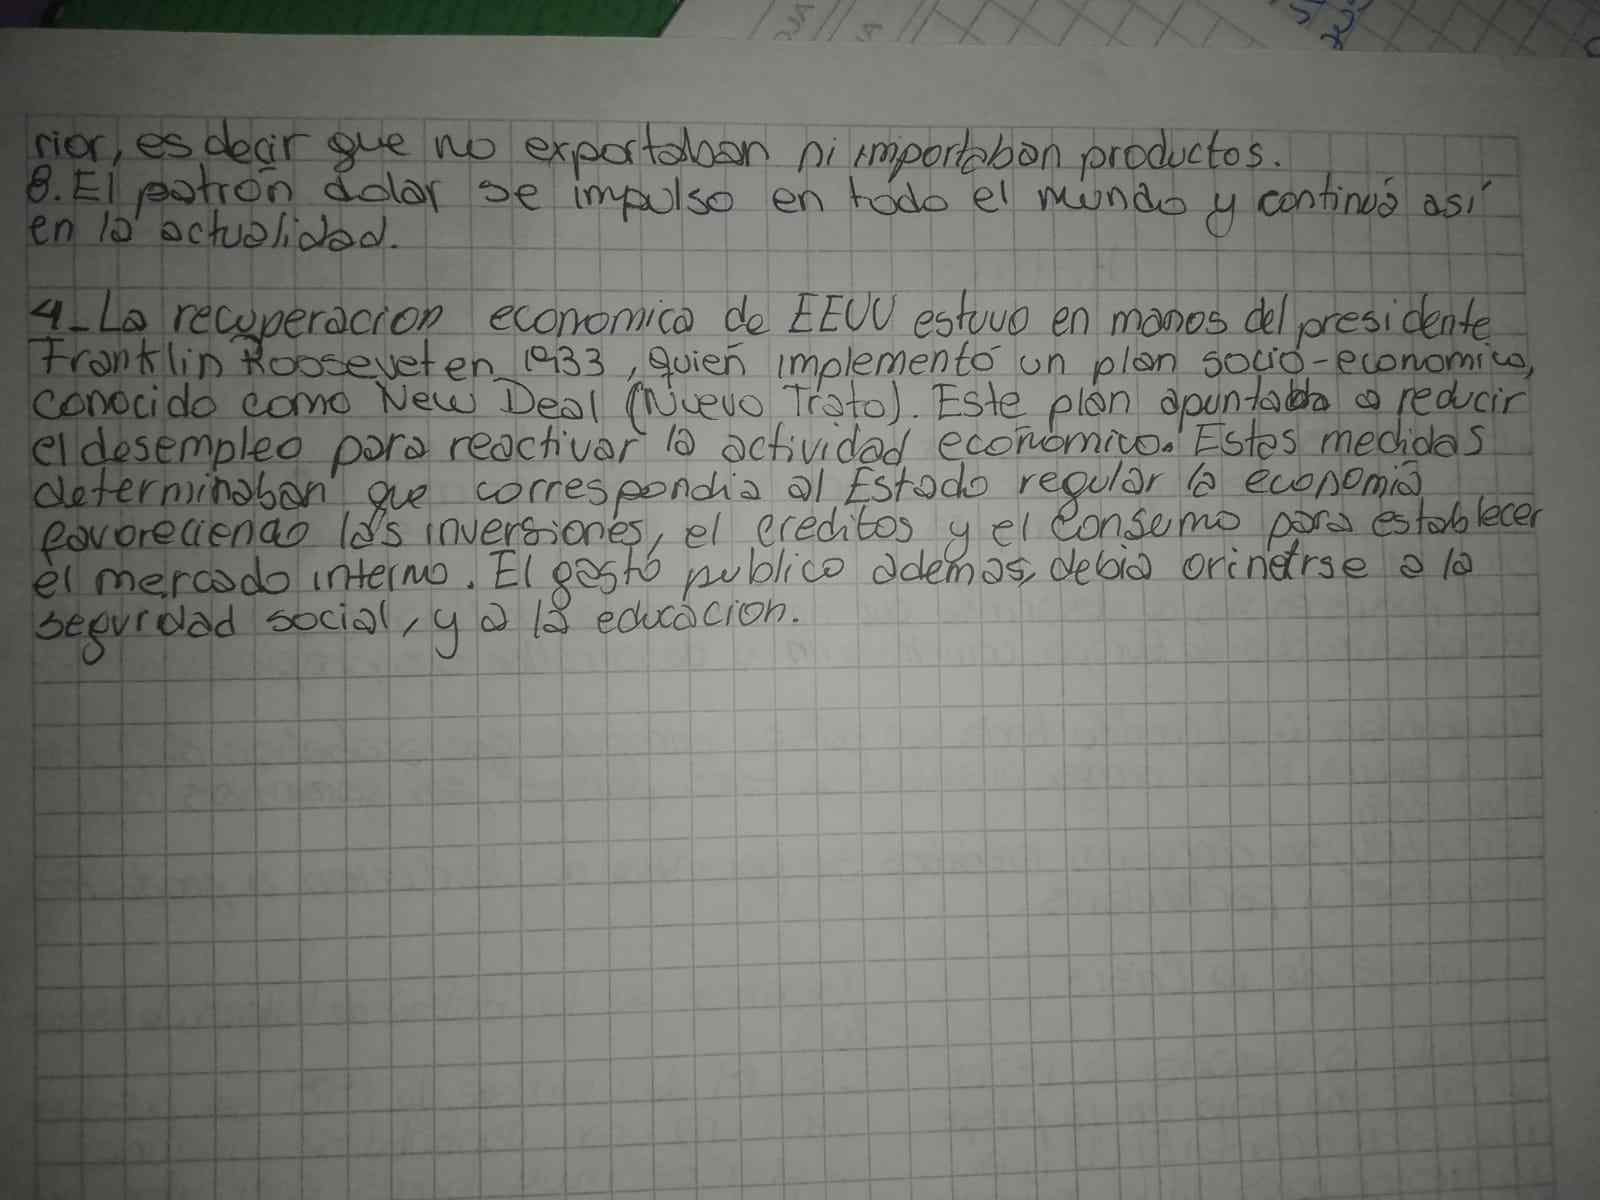 rior, es decir que no exportaban ni importaban productos.
8. El patrón dolar se impulso en todo el mundo y continuó así
en la actualidad.
4_ La recuperacion economica de EEUU estuvo en manos del presidente
Franklin Rooseveet en 1933, quien implementó un plan socio-economico,
conocido como New Deal (Nuevo Trato). Este plan apuntaba a reducir
el desempleo para reactivar la actividad economica. Estas medidas
determinaban que correspondia al Estado regular la economia
favoreciendo las inversiones, el creditos y el consumo para establecer
el mercado interno. El gasto publico ademas, debia orinetrse a la
seguridad social, y a la educacion.